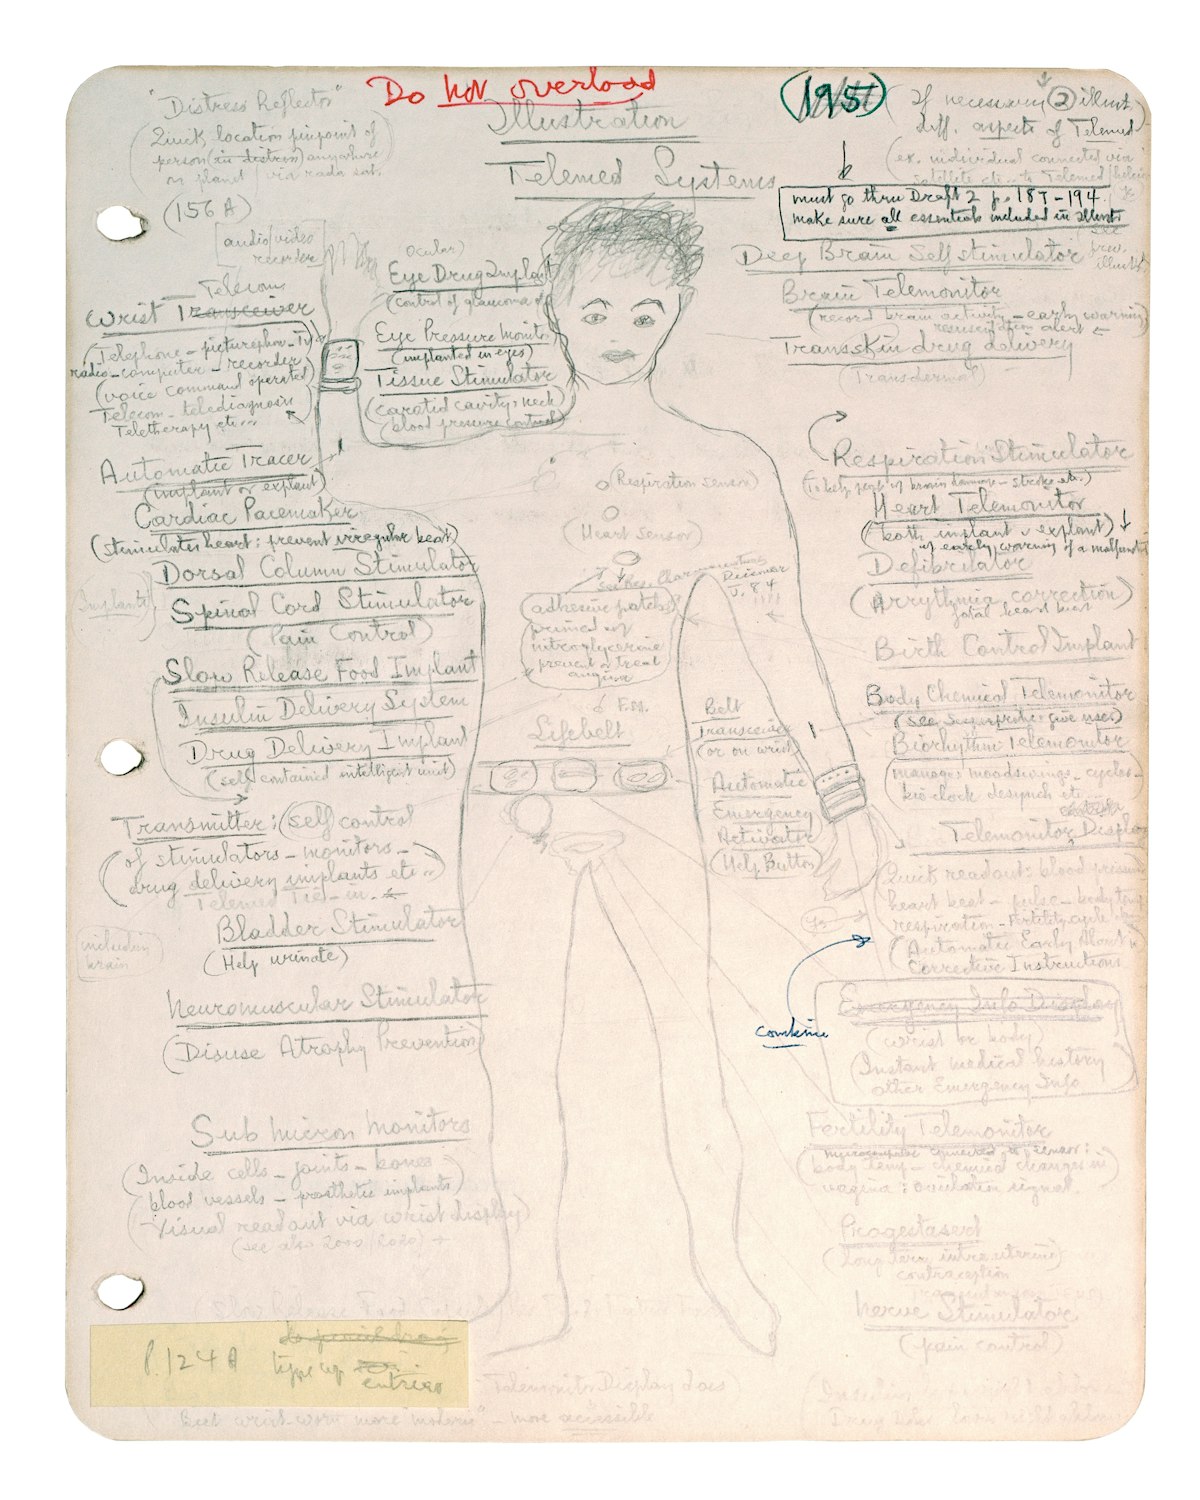 Do not overload
Illustration
Telemed Systems
(195)
If necessary (2) illust.
diff. aspects of Telemed
(ex. individual connected via
satellite etc. to Telemed
must go thru Draft 2 p. 187-194
make sure all essentials included in illust.
see
prev.
illust.
"Distress Reflector"
(Quick location pinpoint of
person (in distress) anywhere
on planet / via radio sat.
(156 A)
[audio/video
recorder
Telecom
Wrist Transceiver
(Telephone - picturephone - TV
radio - computer - recorder
(voice command operated)
Telecom - telediagnosis
Teletherapy etc..
Automatic Tracer
(implant or explant)
Cardiac Pacemaker
(stimulates heart: prevent irregular beat)
Dorsal Column Stimulator
Implants
Spinal Cord Stimulator
(Pain Control)
Slow Release Food Implant
Insulin Delivery System
Drug Delivery Implant
(self contained intelligent unit)
Transmitter: (self control
of stimulators - monitors -
drug delivery implants etc..)
Telemed Tie-in.
Bladder Stimulator
(Help urinate)
including
brain
Neuromuscular Stimulator
(Disuse Atrophy Prevention)
Sub micron monitors
(Inside cells - joints - bones
blood vessels - prosthetic implants)
- Visual readout via wrist display)
(see also 2000/2020)
Ocular)
Eye Drug Implant
(control of glaucoma etc
Eye Pressure Monitor
(implanted in eyes)
Tissue Stimulator
(carotid cavity: neck
blood pressure control)
(Respiration sensor)
(Heart Sensor)
(adhesive patch
primed w/
nitroglycerine
prevent or treat
angina
Lifebelt
Belt
Transceiver
(or on wrist)
Automatic
Emergency
Activator
(Help Button)
Deep Brain Self stimulator
Brain Telemonitor
(record brain activity - early warning
resuscitation alert
Transskin drug delivery
(Transdermal)
Respiration Stimulator
(to help people w/ brain damage - stroke etc.)
Heart Telemonitor
(both implant & explant)
w/ early warning of a malfunction
Defibrilator
(Arrythmia correction)
fatal heart beat
Birth Control Implant
Body Chemical Telemonitor
Biorhythm Telemonitor
(manages moodswings - cycles -
bio clock desynch etc
Telemonitor Display
(Quick readout: blood pressure
heart beat - pulse - body temp
respiration - Fertility cycle
(Automatic Early Alert
Corrective Instructions
combine
Emergency Info Display
(wrist or body)
(Instant medical history
other Emergency Info
Fertility Telemonitor
microcomputer connected to sensor:
body temp - chemical changes in
vagina: ovulation signal.
Progestasert
(Long term intra uterine)
contraception
Nerve Stimulator
(pain control)
P. 124 A
type up
entries
Telemonitor Display does)
Belt wrist-worn more "modern" - more accessible